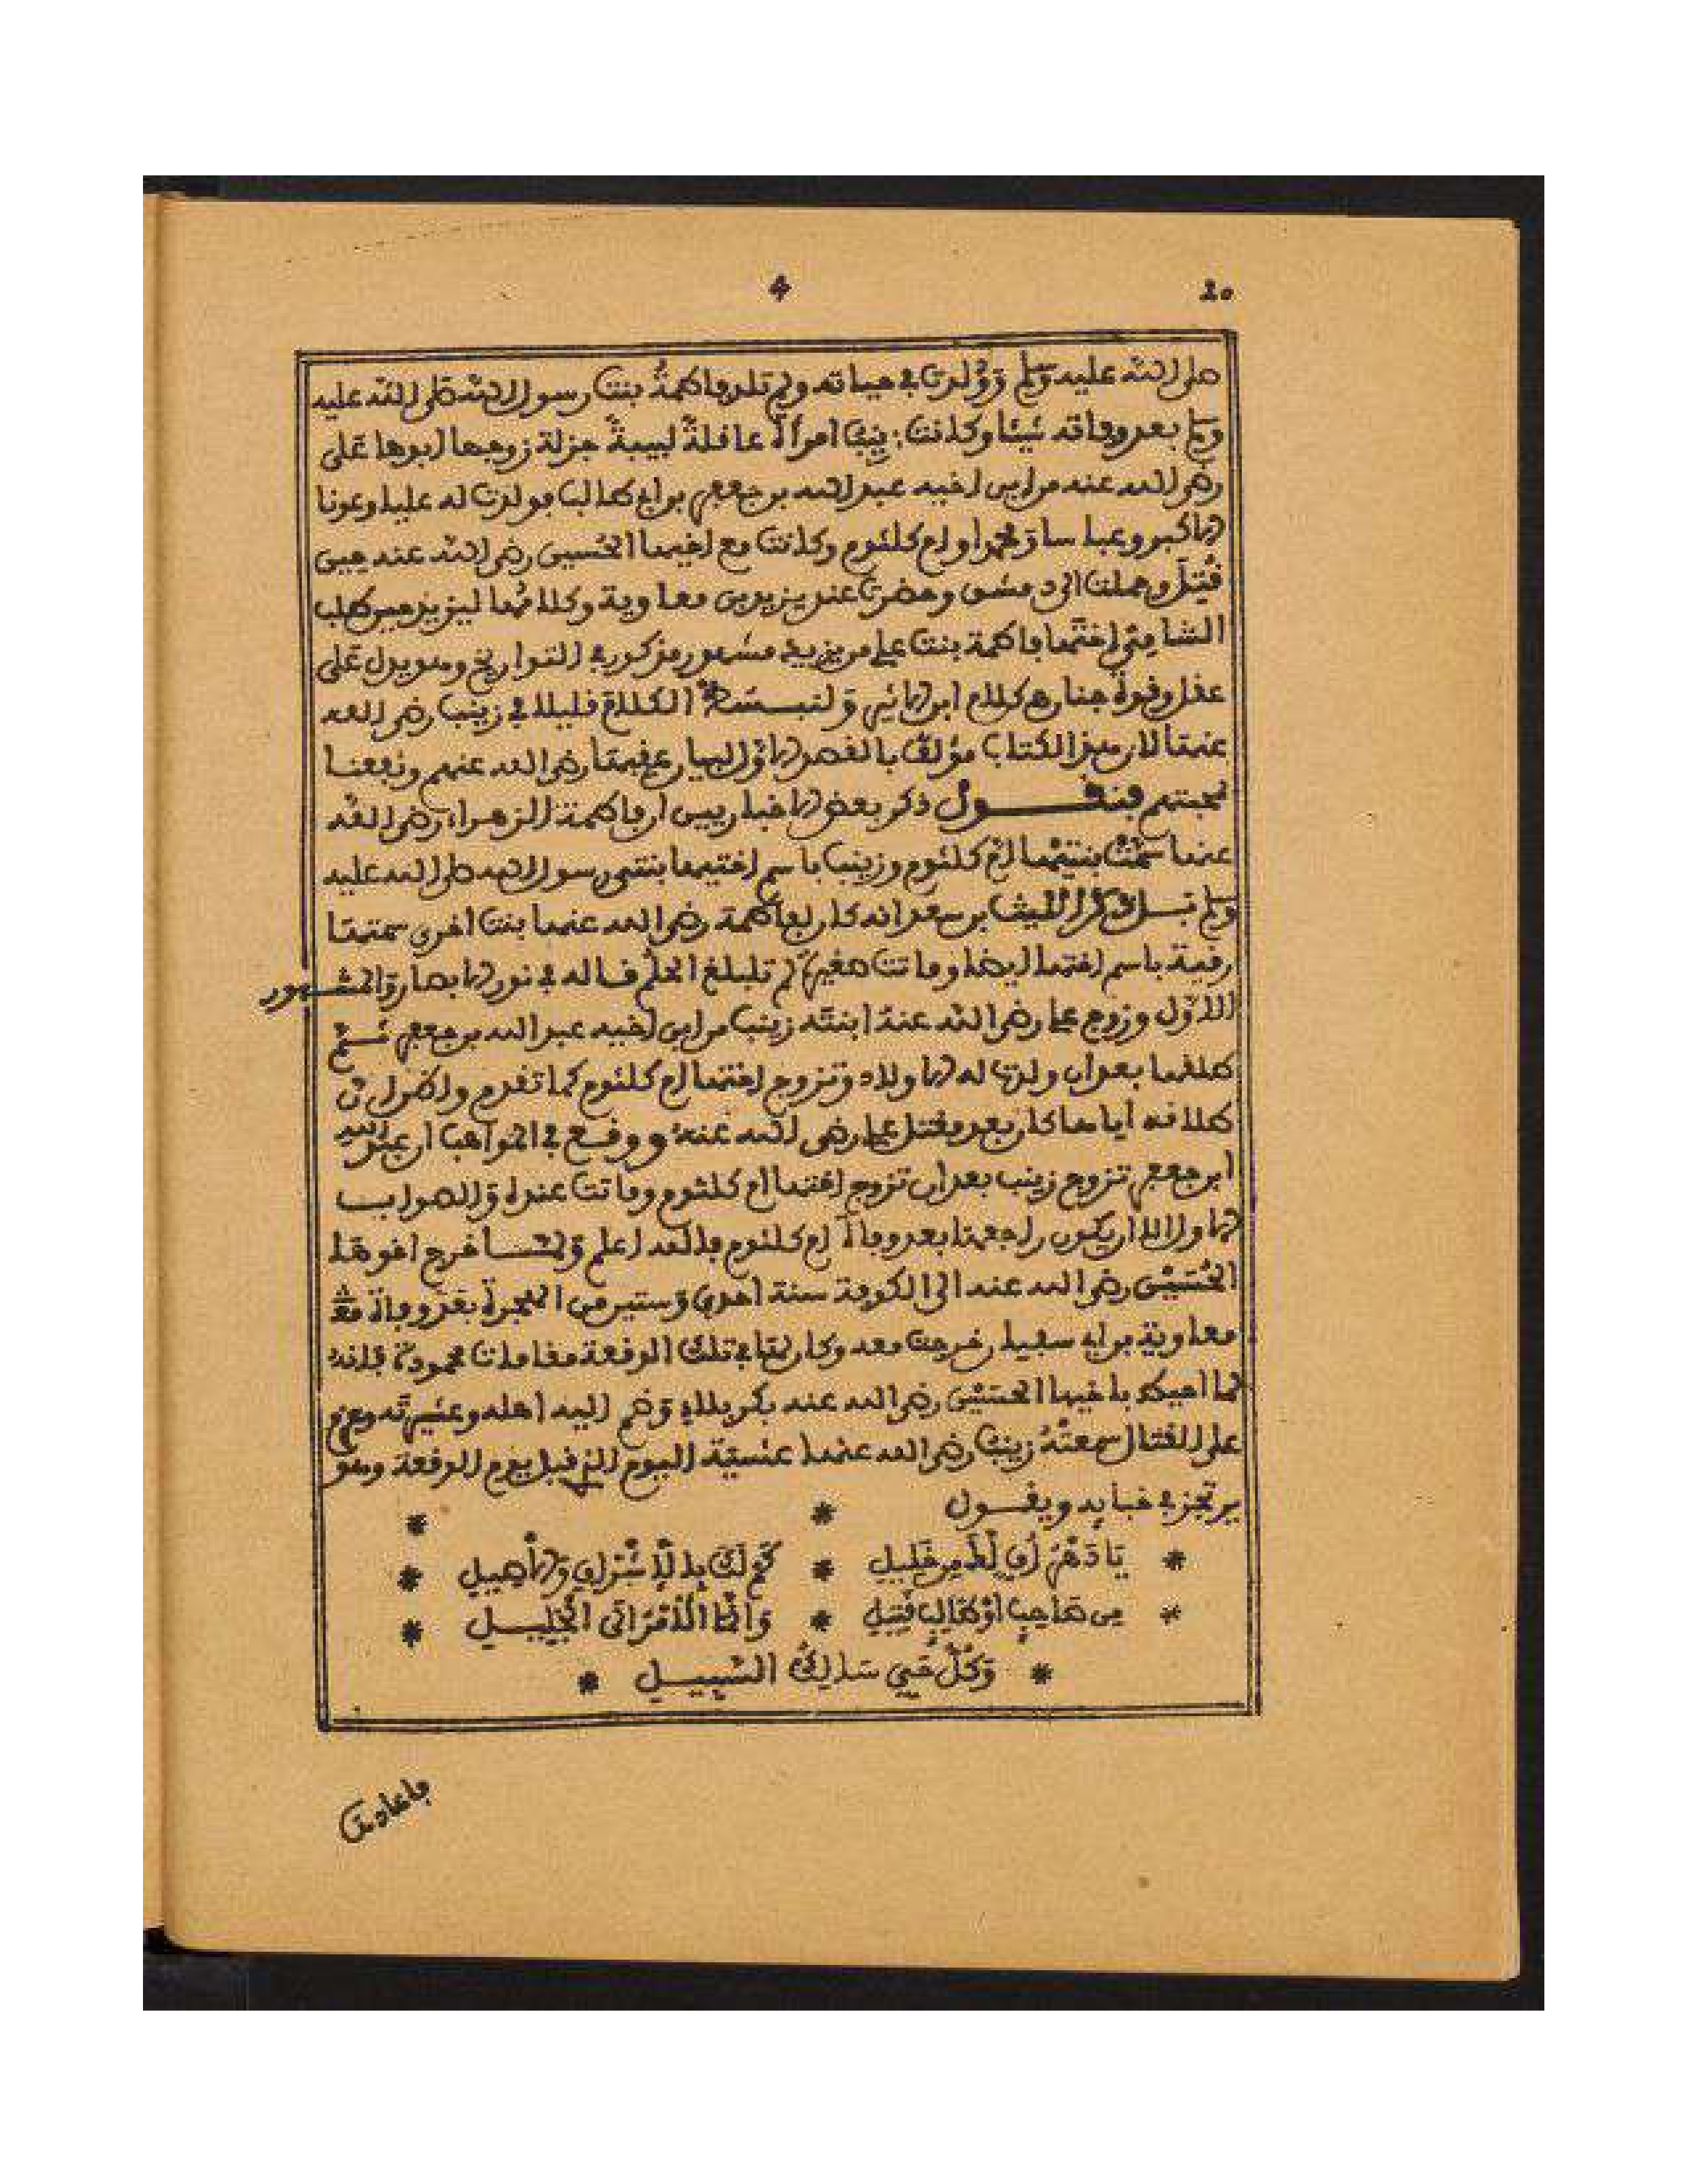 20 4
صلى الله عليه وسلم وولدت في حياته ولم تلد فاطمة بنت رسول الله صلى الله عليه
وسلم بعد وفاته شيئا وكانت زينب امرأة عاقلة لبيبة جزلة زوجها ابوها على
رضى الله عنه من ابن اخيه عبد الله بن جعفر بن ابي طالب فولدت له عليا وعونا
الاكبر وعباسا ومحمدا وام كلثوم وكانت مع اخيها الحسين رضى الله عنه حين
قتل وحملت الى دمشق وحضرت عند يزيد بن معاوية وكلامها ليزيد حين طلب
الشامي اختها فاطمة بنت علي من يزيد مشهور مذكور في التواريخ وهو يدل على
عقل وقوة جنان هـ كلام ابن الاثير ولنبسط الكلام قليلا في زينب رضى الله
عنها لان هذا الكتاب مؤلف بالقصد الاول لبيان عقبها رضى الله عنهم ونفعنا
بمحبتهم فنقول ذكر بعض الاخباريين ان فاطمة الزهراء رضى الله
عنها سمت بنتيها ام كلثوم وزينب باسم اختيها بنتي رسول الله صلى الله عليه
وسلم بل ذكر الليث بن سعد انه كان لفاطمة رضى الله عنها بنت اخرى سمتها
رقية باسم اختها ايضا وماتت صغيرة لم تبلغ الحلم قاله في نور الابصار والمشهور
الاول وزوج علي رضى الله عنه ابنته زينب من ابن اخيه عبد الله بن جعفر ثم
طلقها بعد ان ولدت له الاولاد وتزوج اختها ام كلثوم كما تقدم واظن ان
طلاقه اياها كان بعد مقتل علي رضى الله عنه ووقع في المواهب ان عبد الله
ابن جعفر تزوج زينب بعد ان تزوج اختها ام كلثوم وماتت عنده والصواب
الاول الا ان يكون راجعها بعد وفاة ام كلثوم فالله اعلم ولما خرج اخوها
الحسين رضى الله عنه الى الكوفة سنة احدى وستين من الهجرة بعد وفاة
معاوية بن ابي سفيان خرجت معه وكان لها في تلك الوقعة مقامات محمودة فانه
لما احيط باخيها الحسين رضى الله عنه بكربلاء وضم اليه اهله وعشيرته وعزم
على القتال سمعته زينب رضى الله عنها عشية اليوم الذي قبل يوم الوقعة وهو
يرتجز في خبائه ويقول * *
* يا دهر اف لك من خليل * كم لك بالاشراق والاصيل *
* من صاحب او طالب قتيل * وانما الامر الى الجليل *
* وكل حي سالك السبيل *
فاعادها